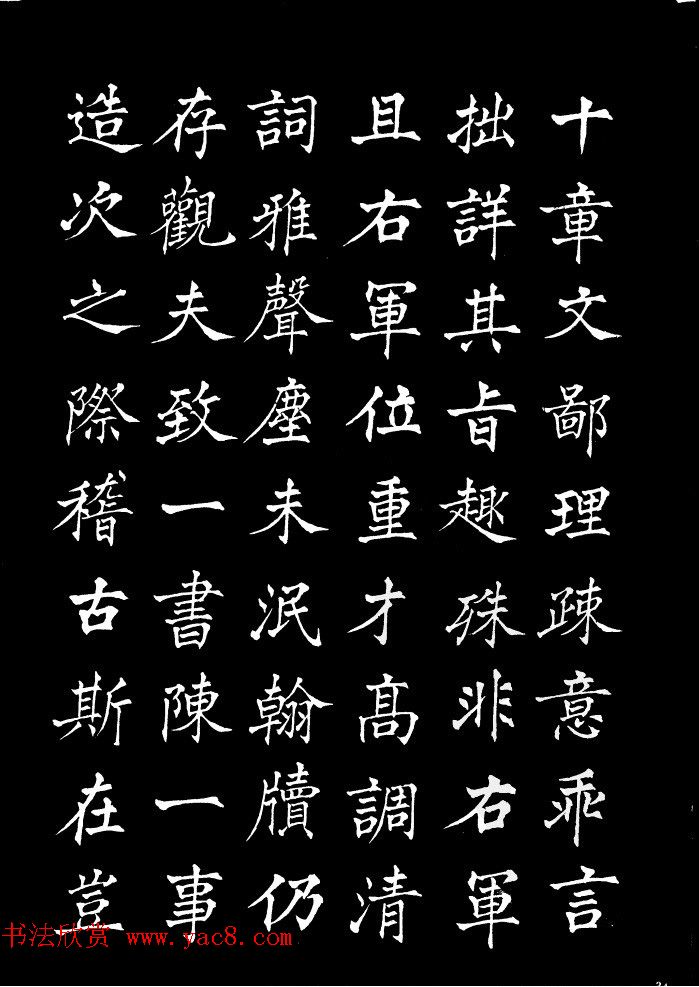 十章文鄙理疎意乖言
拙詳其旨趣殊非右軍
且右軍位重才髙調清
詞雅聲塵未泯翰牘仍
存觀夫致一書陳一事
造次之際稽古斯在豈
书法欣赏 www.yac8.com